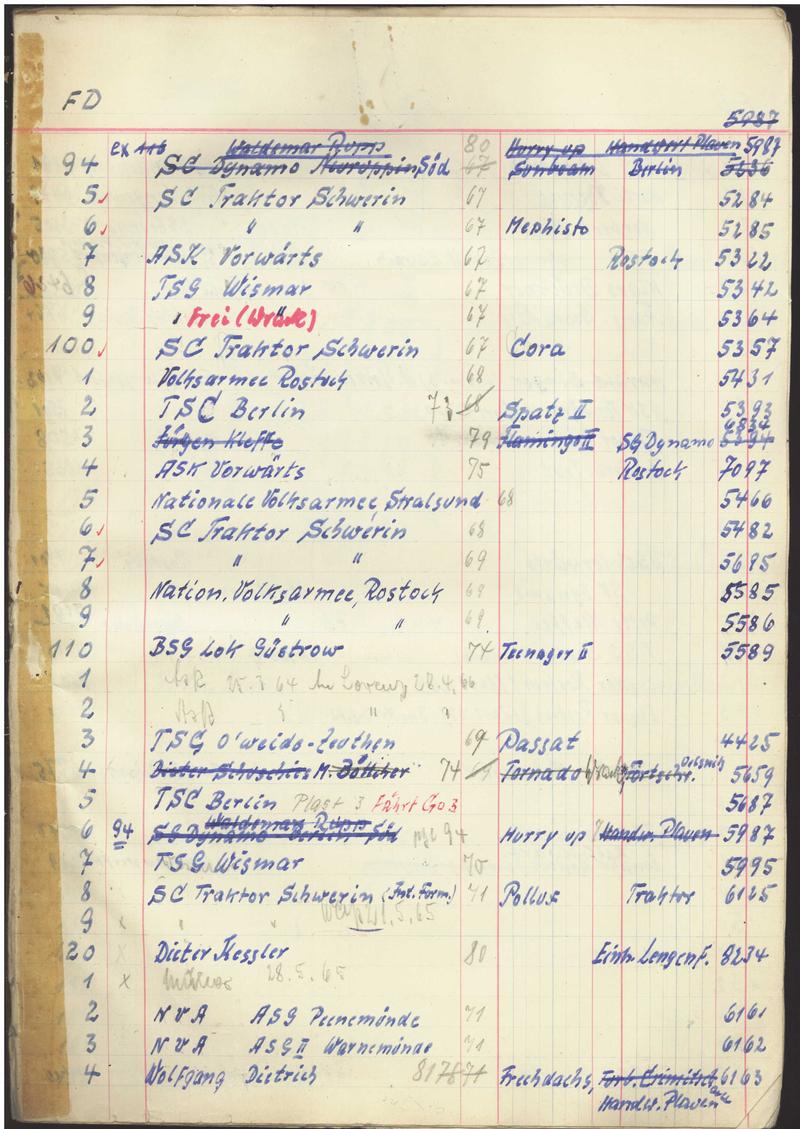 FD
5987
ex 116 Waldemar Rupp 80 Hurry up Handwerk Plauen 5987
94 SC Dynamo Neuruppin Süd 67 Sunbeam Berlin 5636
5 SC Traktor Schwerin 67 5284
6 " " 67 Mephisto 5285
7 ASK Vorwärts 67 Rostock 5322
8 TSG Wismar 67 5342
9 " Frei (Wrack) 67 5364
100 SC Traktor Schwerin 67 Cora 5357
1 Volksarmee Rostock 68 5431
2 TSC Berlin 73 68 Spatz II 5393
6834
3 Jürgen Kleffe 79 Flamingo II SG Dynamo 5394
4 ASK Vorwärts 75 Rostock 7097
5 Nationale Volksarmee, Stralsund 68 5466
6 SC Traktor Schwerin 68 5482
7 " " 69 5695
8 Nation. Volksarmee, Rostock 69 5585
9 " " 69 5586
110 BSG Lok Güstrow 74 Teenager II 5589
1 25.3.64 Lorenz 28.4.66
2 " "
3 TSG O'weide-Zeuthen 69 Passat 4425
4 Dieter Schoschies M. Böttcher 74 Tornado Fortschr. Oelsnitz 5659
5 TSC Berlin Plast 3 Fährt GO 3 5687
Waldemar Rupp
6 94 SG Dynamo Berlin Süd 94 Hurry up Handw. Plauen 5987
7 TSG Wismar 70 5995
8 SC Traktor Schwerin (Int. Form.) 71 Pollux Traktor 6125
9 x " " 1.5.65
120 x Dieter Kessler 80 Einh. Lengenf. 8234
1 x 28.5.65
2 NVA ASG Peenemünde 71 6161
3 NVA ASG II Warnemünde 71 6162
4 Wolfgang Dietrich 81 78 71 Frechdachs, Fortschr. Crimitsch. 6163
Handw. Plauen